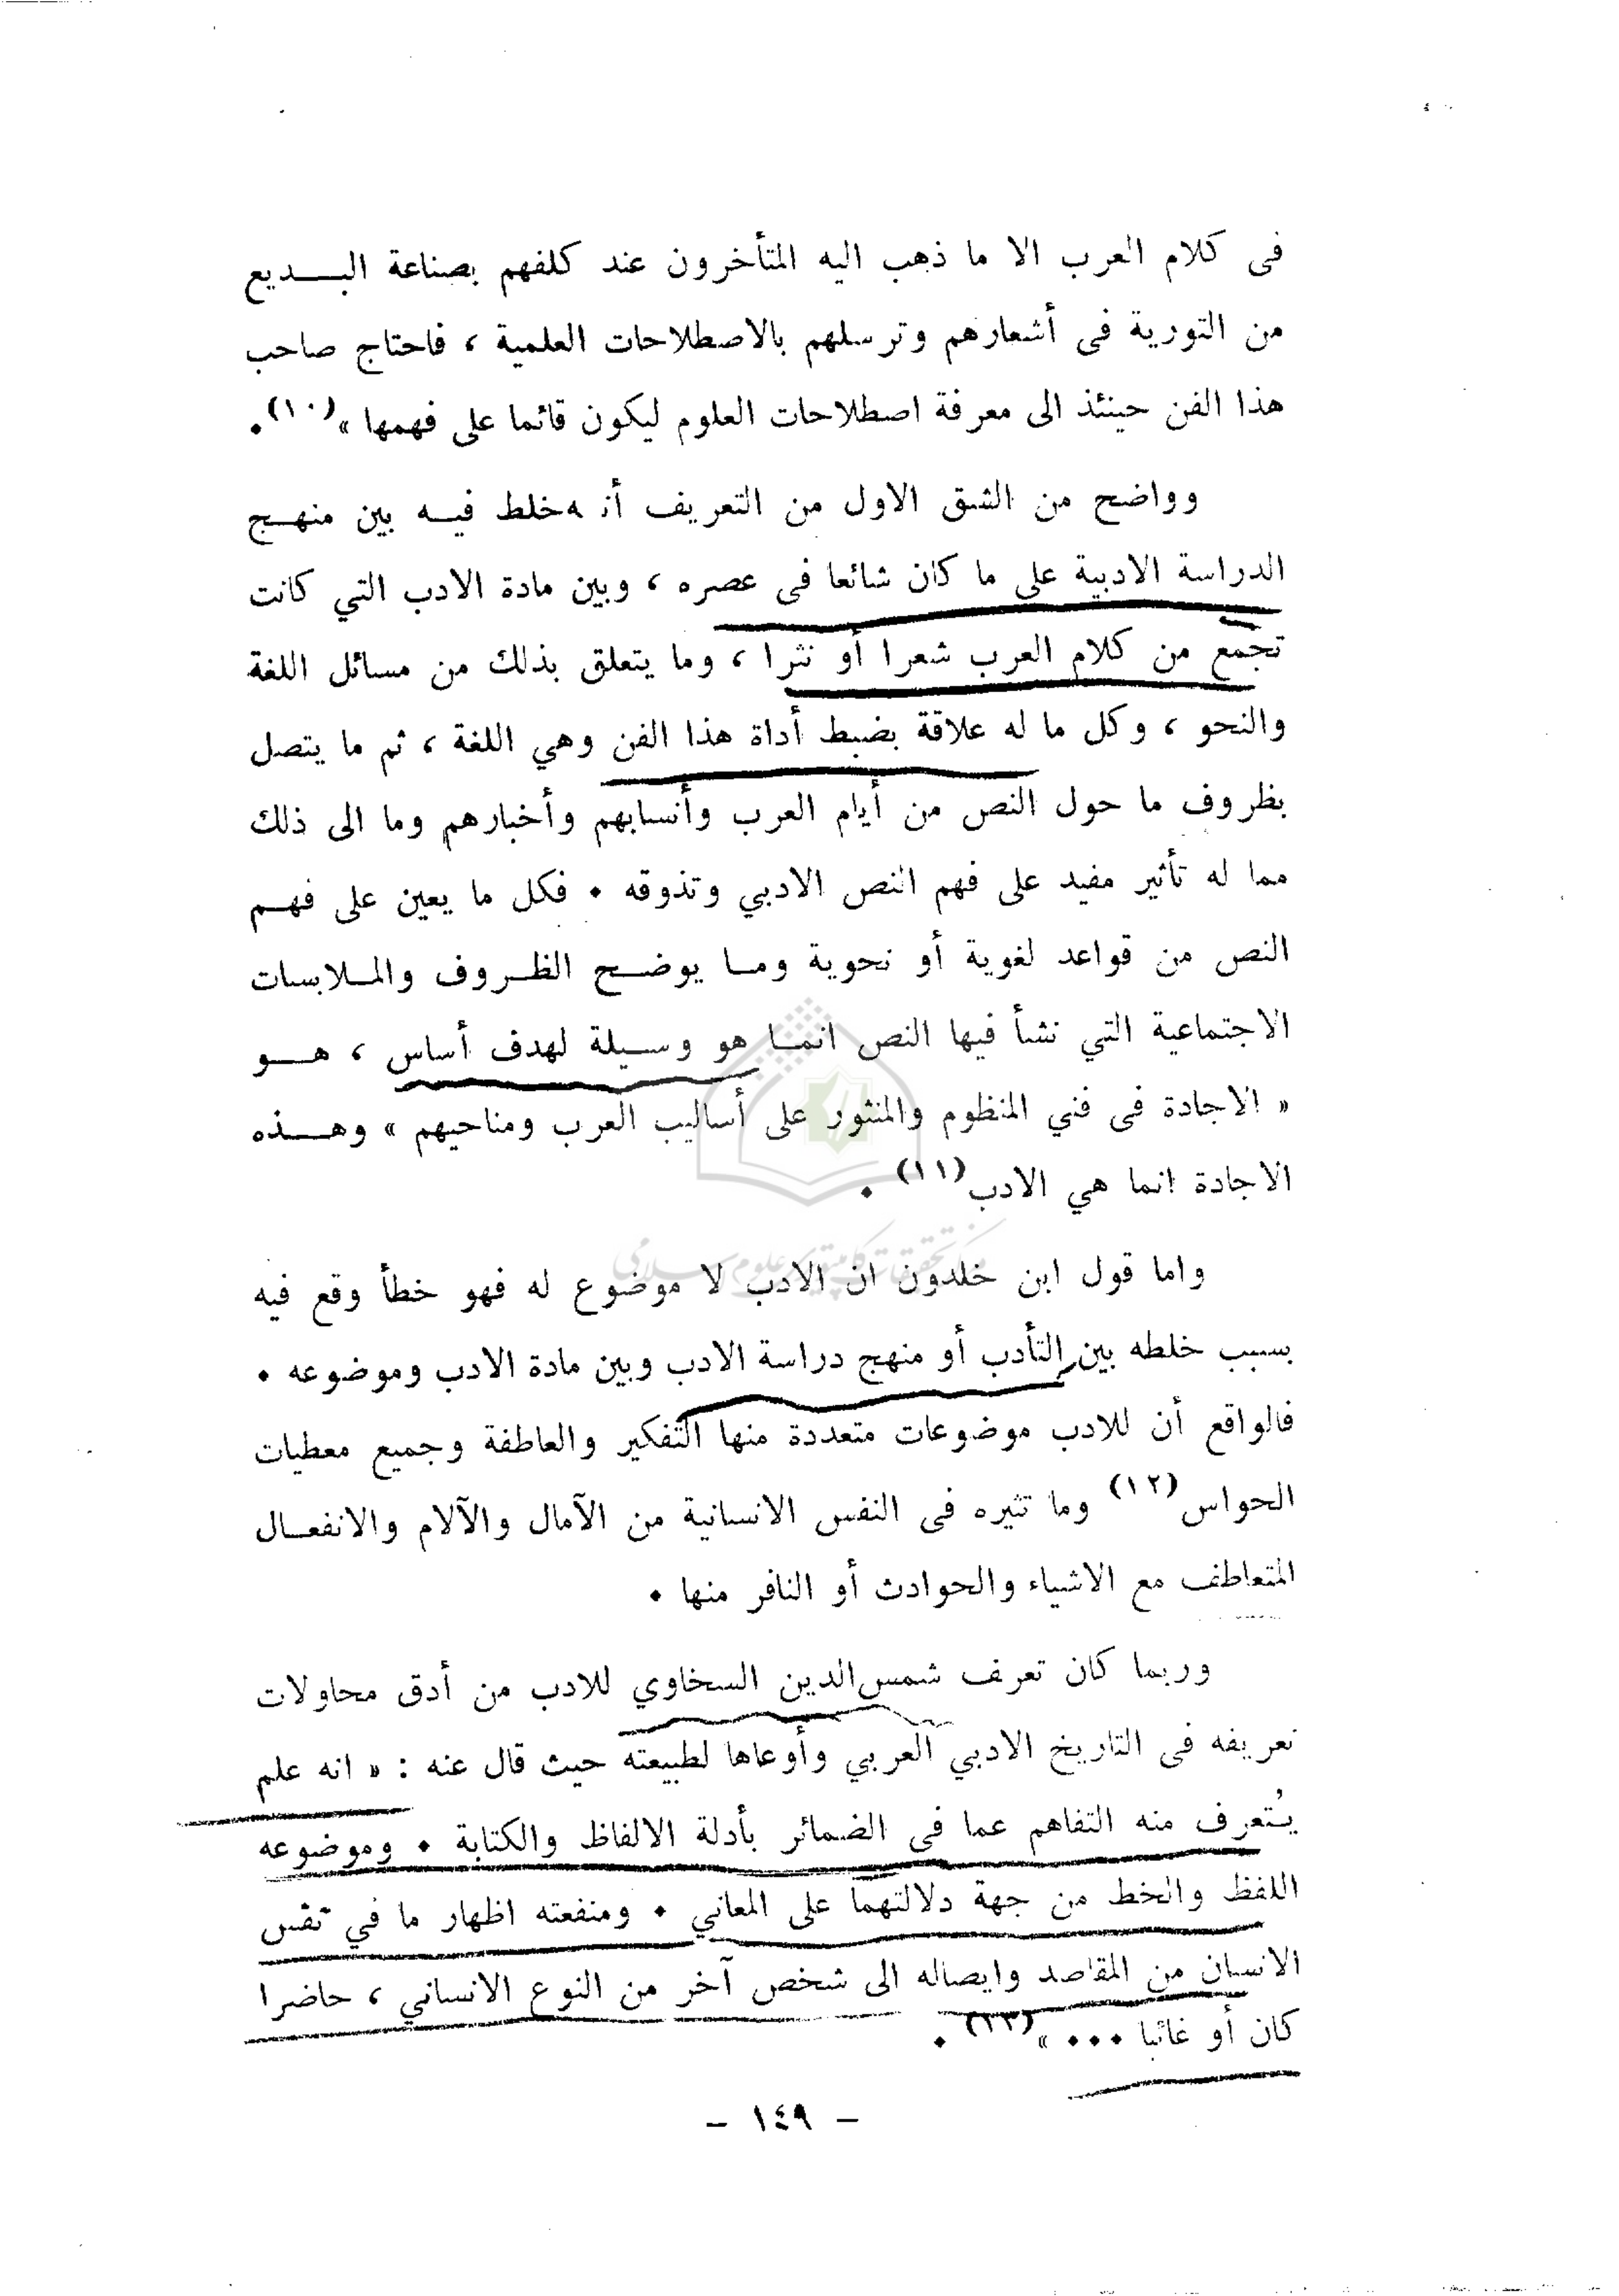 فى كلام العرب الا ما ذهب اليه المتأخرون عند كلفهم بصناعة البـــديع
من التورية فى أشعارهم وترسلهم بالاصطلاحات العلمية ، فاحتاج صاحب
هذا الفن حينئذ الى معرفة اصطلاحات العلوم ليكون قائما على فهمها »(١٠).
وواضح من الشق الاول من التعريف أنه خلط فيــه بين منهــج
الدراسة الادبية على ما كان شائعا فى عصره ، وبين مادة الادب التي كانت
تجمّع من كلام العرب شعرا أو نثرا ، وما يتعلق بذلك من مسائل اللغة
والنحو ، وكل ما له علاقة بضبط أداة هذا الفن وهي اللغة ، ثم ما يتصل
بظروف ما حول النص من أيام العرب وأنسابهم وأخبارهم وما الى ذلك
مما له تأثير مفيد على فهم النص الادبي وتذوقه . فكل ما يعين على فهــم
النص من قواعد لغوية أو نحوية ومــا يوضــح الظــروف والمــلابسات
الاجتماعية التي نشأ فيها النص انمــا هو وســيلة لهدف أساس ، هـــو
« الاجادة فى فني المنظوم والمنثور على أساليب العرب ومناحيهم » وهـــذه
الاجادة انما هي الادب(١١) .
مركز تحقيقات كامپيوتري علوم اسلامي
واما قول ابن خلدون ان الادب لا موضوع له فهو خطأ وقع فيه
بسبب خلطه بين التأدب أو منهج دراسة الادب وبين مادة الادب وموضوعه .
فالواقع أن للادب موضوعات متعددة منها التفكير والعاطفة وجميع معطيات
الحواس(١٢) وما تثيره فى النفس الانسانية من الآمال والآلام والانفعــال
المتعاطف مع الاشياء والحوادث أو النافر منها .
وربما كان تعرف شمس‌الدين السخاوي للادب من أدق محاولات
تعريفه فى التاريخ الادبي العربي وأوعاها لطبيعته حيث قال عنه : « انه علم
يُتعرف منه التفاهم عما فى الضمائر بأدلة الالفاظ والكتابة . وموضوعه
اللفظ والخط من جهة دلالتهما على المعاني . ومنفعته اظهار ما في نفس
الانسان من المقاصد وايصاله الى شخص آخر من النوع الانساني ، حاضرا
كان أو غائبا ... »(١٣) .
– ١٤٩ –